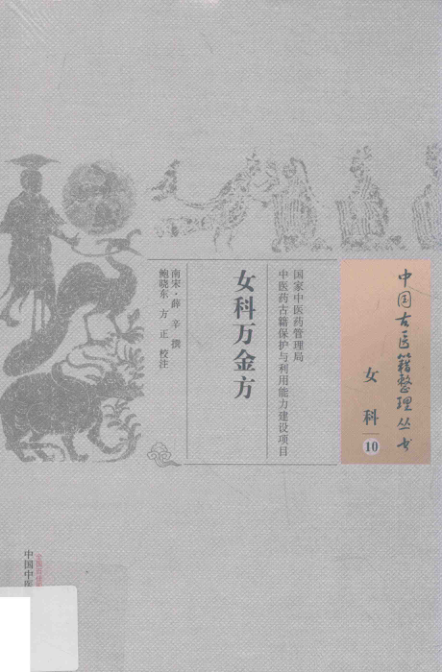 中国古医籍整理丛书
女科
10
国家中医药管理局
中医药古籍保护与利用能力建设项目
女科万金方
南宋·薛 辛 撰
鲍晓东 方 正 校注
中国中医